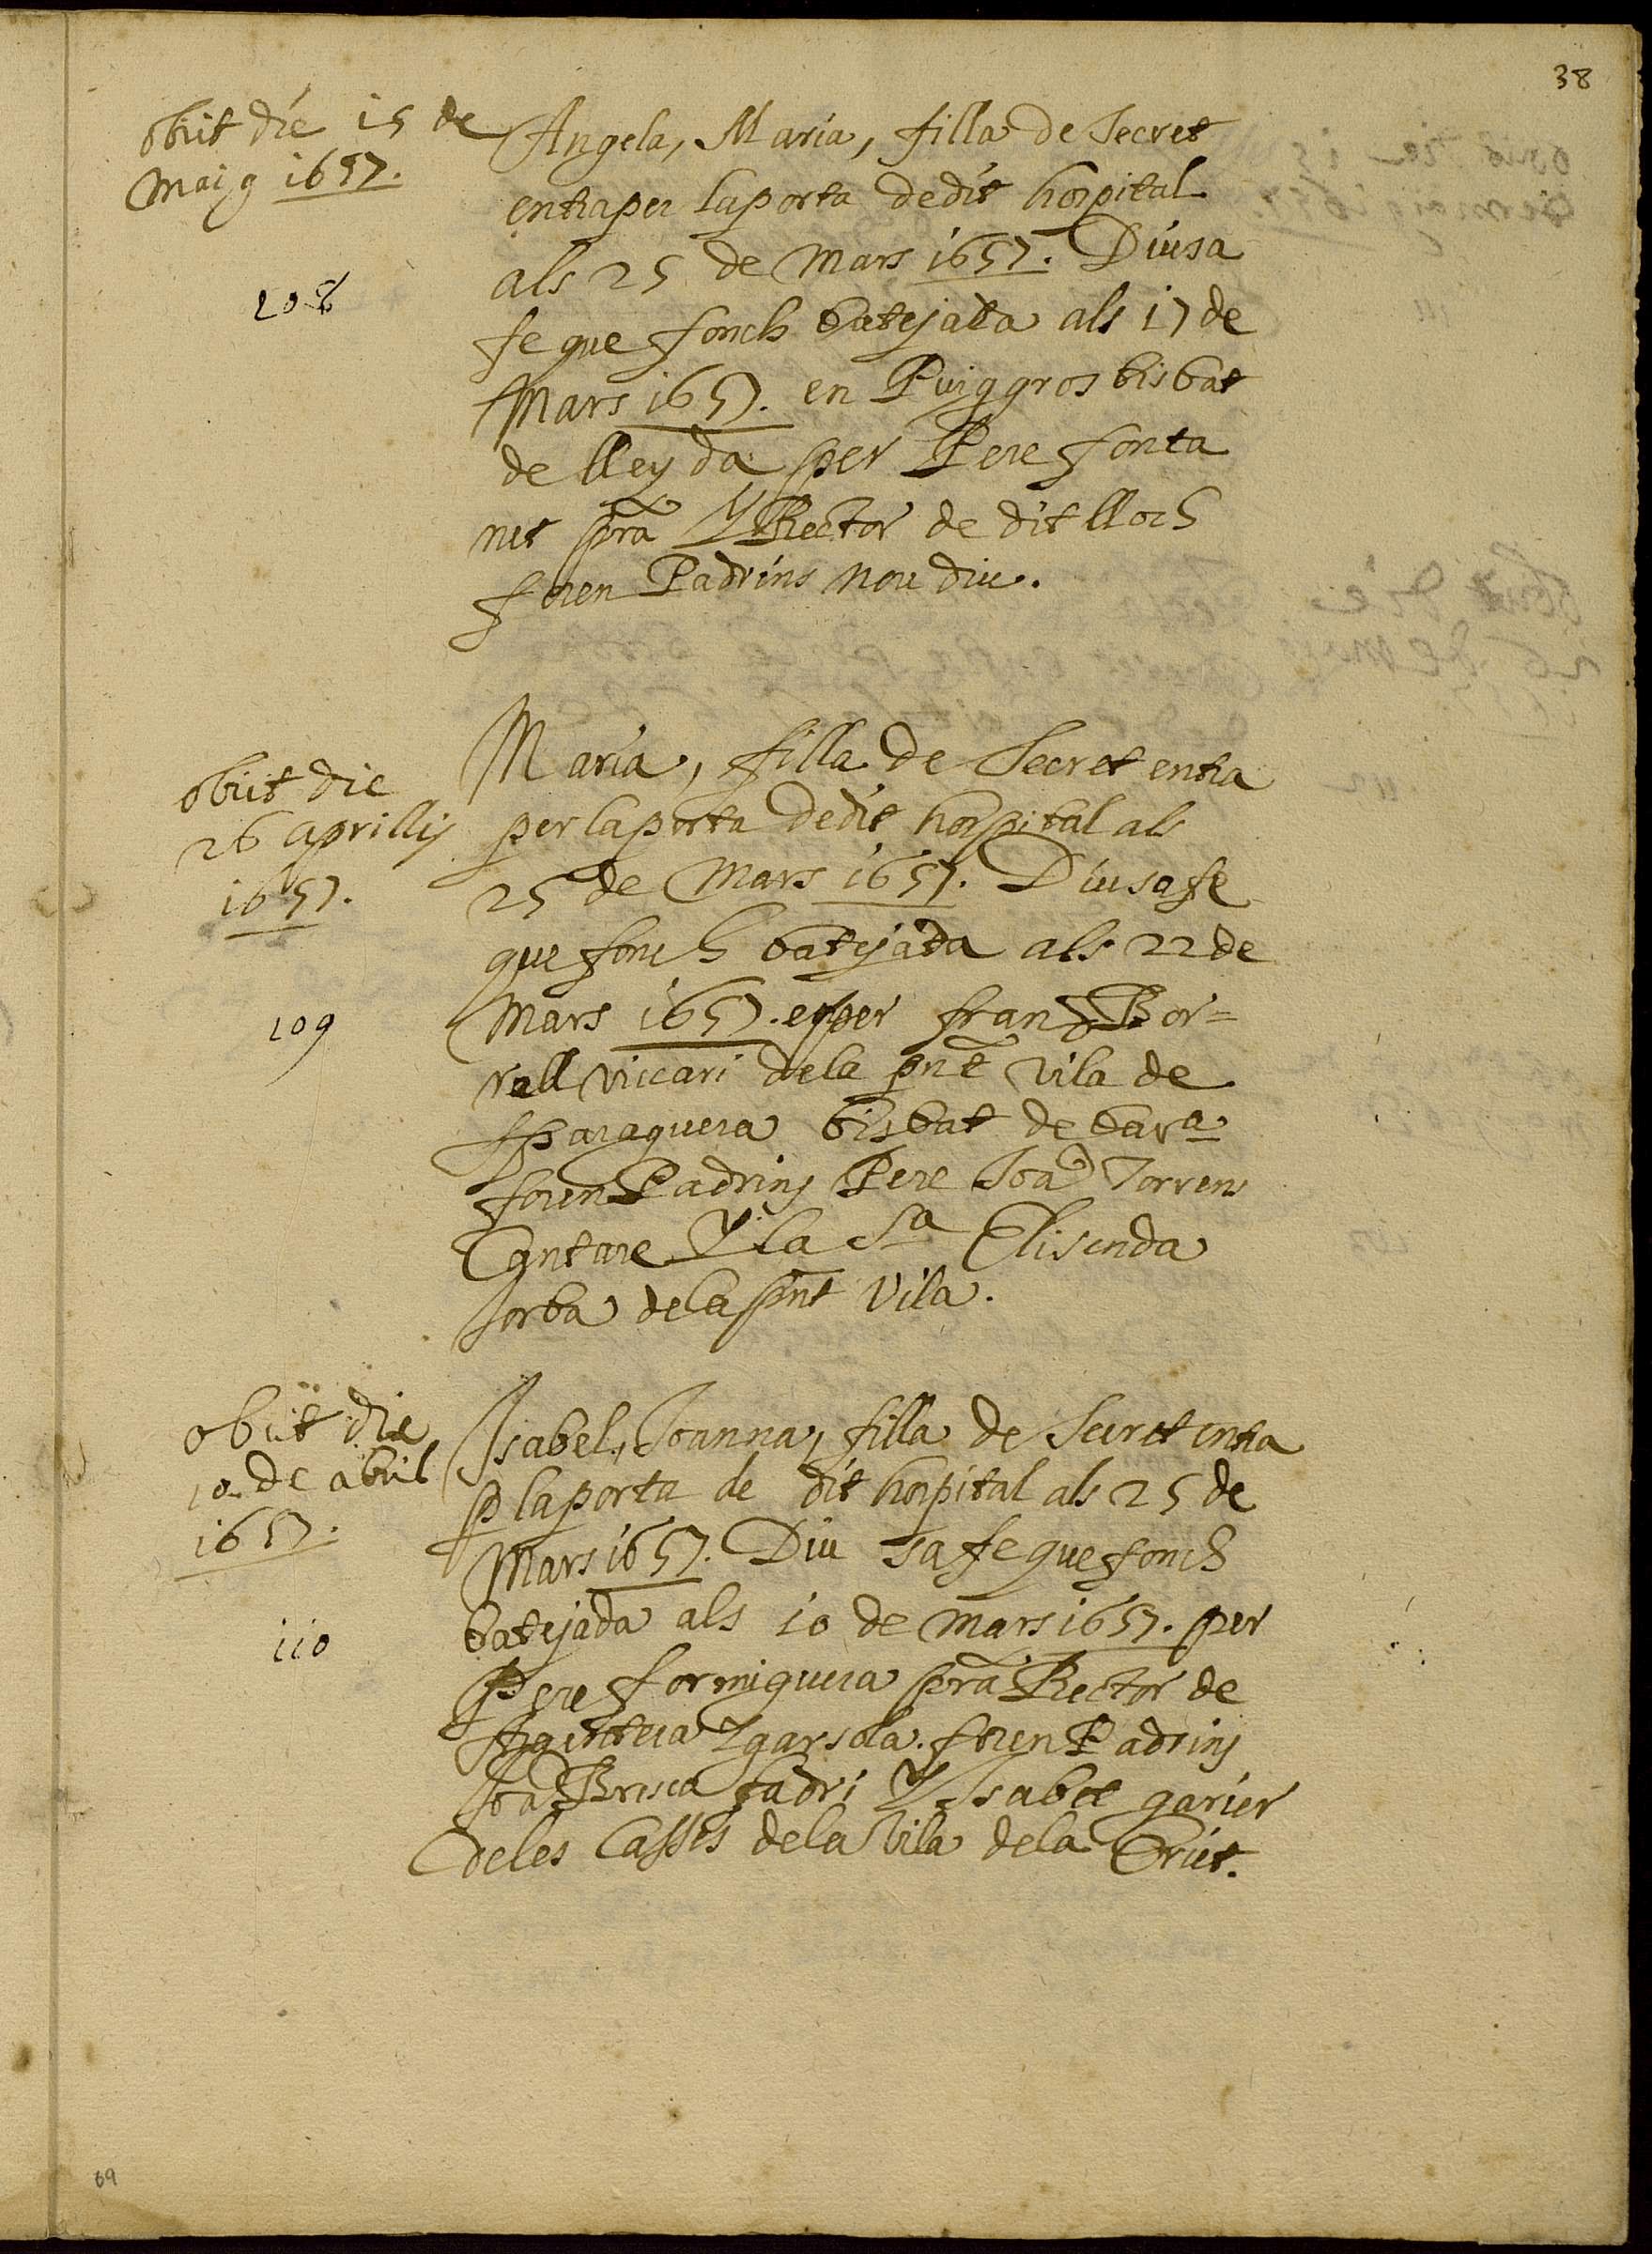 38
obiit die 15 de
Maig 1657.
108
Angela, Maria, filla de Secret
entra per laporta dedit hospital
als 25 de Mars 1657. Diu sa
fe que fonch batejada als 17 de
Mars 1657. en Puiggros bisbat
de lleyda per Pere fonta
net pra y Rector de dit lloch
foren Padrins nou diu.
obiit die
26 aprillis
1657.
109
Maria, filla de Secret entra
per laporta dedit hospital als
25 de Mars 1657. Diu sa fe
que fonch batejada als 22 de
Mars 1657. per fran Bor=
rell vicari dela pnt vila de
sparaguera bisbat de bara
foren Padrins Pere Joa Torrens
Cantare y la Sa Elisenda
Jorba dela pnt Vila.
obiit die
10 de abril
1657.
110
Isabel, Joanna, filla de Secret entra
p laporta de dit hospital als 25 de
Mars 1657. Diu sa fe que fonch
batejada als 10 de Mars 1657. per
Pere formiguera pra Rector de
Argentera y garsola. foren Padrins
Joa Bresca fadri y Isabel garier
deles Casses dela Vila dela
69